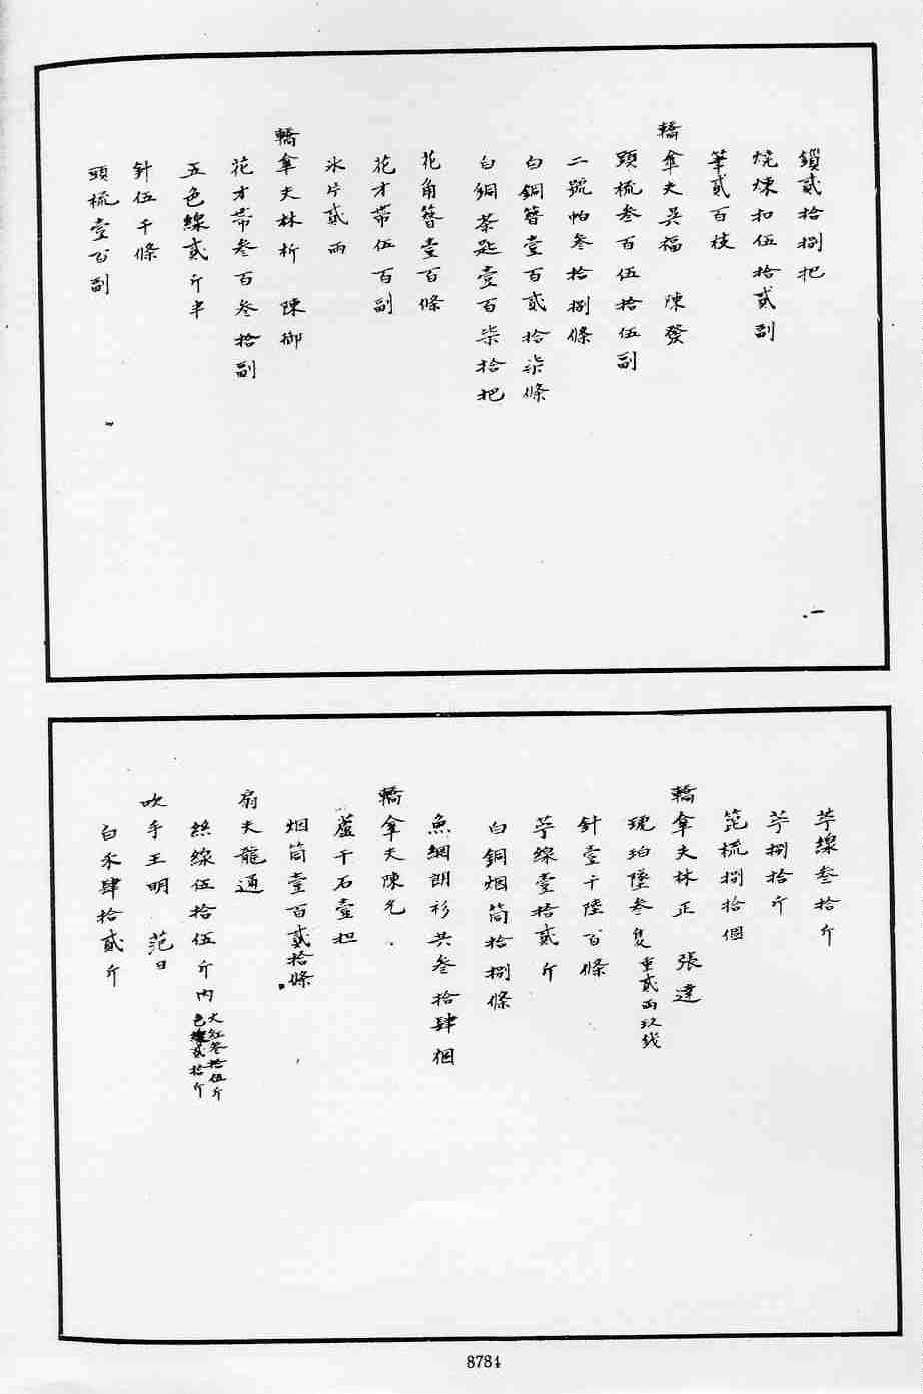 鎖貳拾捌把
燒煉扣伍拾貳副
筆貳百枝
轎傘夫吳福　陳發
頭梳叁百伍拾伍副
二號帕叁拾捌條
白銅簪壹百貳拾柒條
白銅茶匙壹百柒拾把
花角簪壹百條
花才帶伍百副
冰片貳兩
轎傘夫林析　陳御
花才帶叁百叁拾副
五色線貳斤半
針伍千條
頭梳壹百副
苧線叁拾斤
苧捌拾斤
篦梳捌拾個
轎傘夫林正　張達
琥珀墜叁隻重貳兩玖錢
針壹千陸百條
苧線壹拾貳斤
白銅烟筒拾捌條
魚網朗衫共叁拾肆個
轎傘夫陳允
蘆干石壹担
烟筒壹百貳拾條
扇夫龍通
絲線伍拾伍斤内大紅叁拾伍斤色線貳拾斤
吹手王明　范日
白米肆拾貳斤
8784